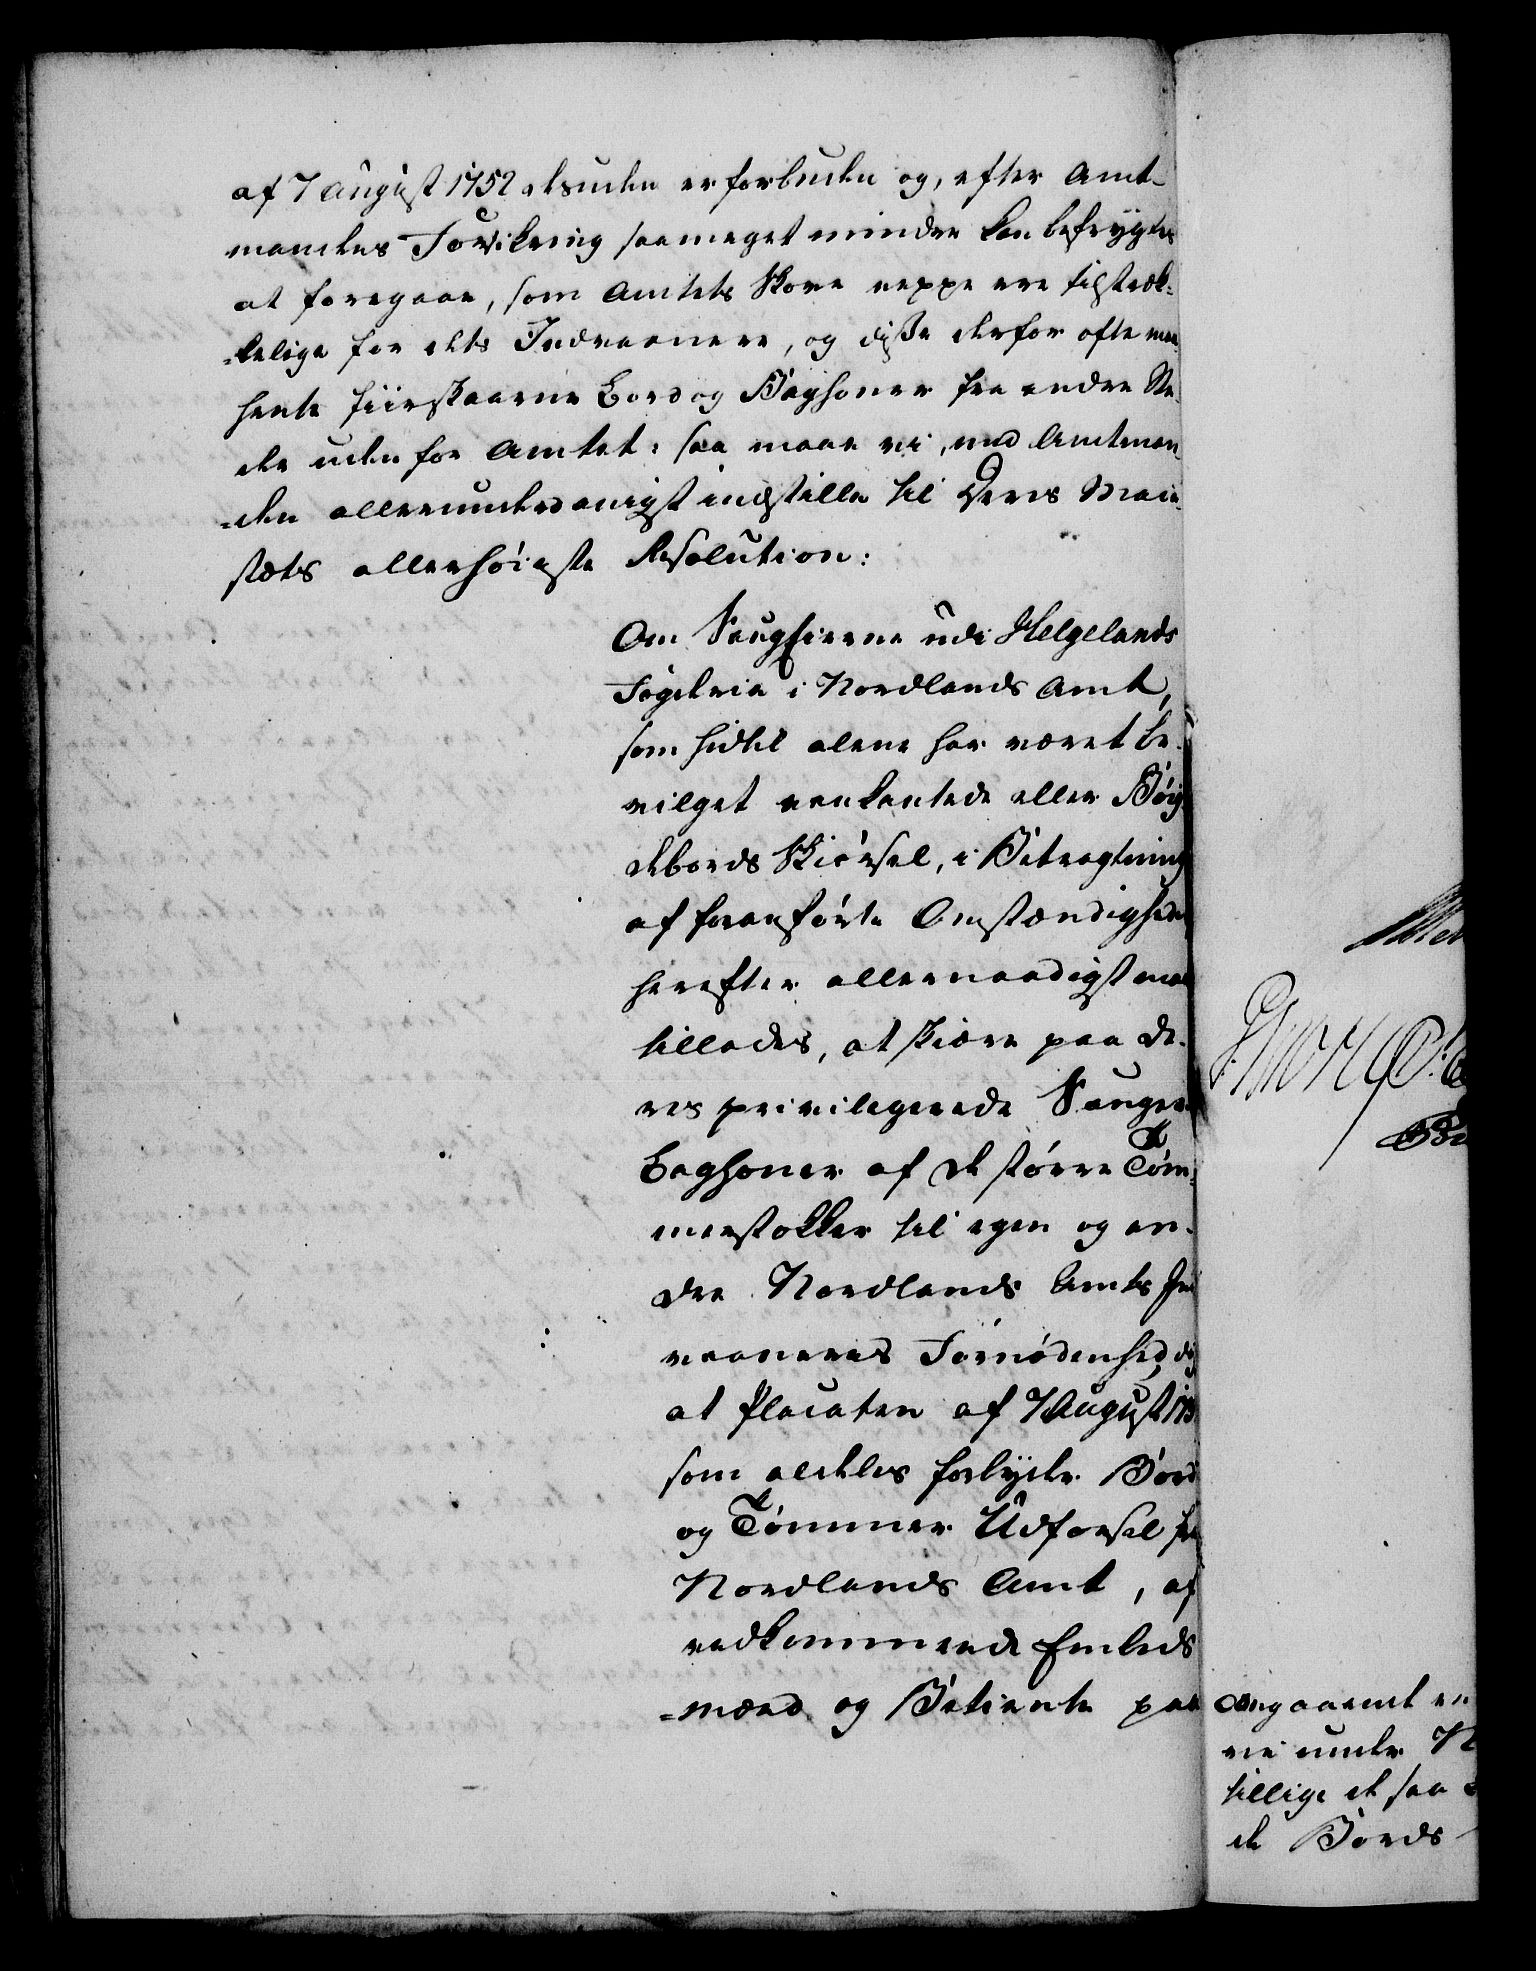 af 7 August 1752 desuden er forbuden og, efter Amt-
mandens Forsikring saameget mindre kan befrygtes
at foregaae, som Amtets Skove neppe ere tilstræk-
-kelige for dets Indvaanere, og disse derfor ofte maae
hente fiirskaarne Bord og Baghoner fra andre Ste-
der uden for Amtet: saa maae vi, med Amtman-
-den allerunderdanigst indstille til Deres Maje-
stæts allerhøieste Resolution:
Om Saugeierne udi Helgelands
Fogderie i Nordlands Amt,
som hidtil alene har været be-
vilget vankantede eller Bøig-
debords Skiørsel, i Betragtning
af foranførte Omstændigheder
herefter allernaadigst maae
tillades, at skiære paa de-
res privilegerede Sauger
Baghoner af de større Tøm-
merstokker til egen og an-
dre Nordlands Amts Ind
vaaneres Fornødenhed, og
at Placaten af 7 August 175
som aldeles forbyder Bord
og Tømmer Udførsel fra
Nordlands Amt, af
vedkommende Embeds
-mænd og Betiente paa
Angaaende
vi under N
tillige et saa
de Bords